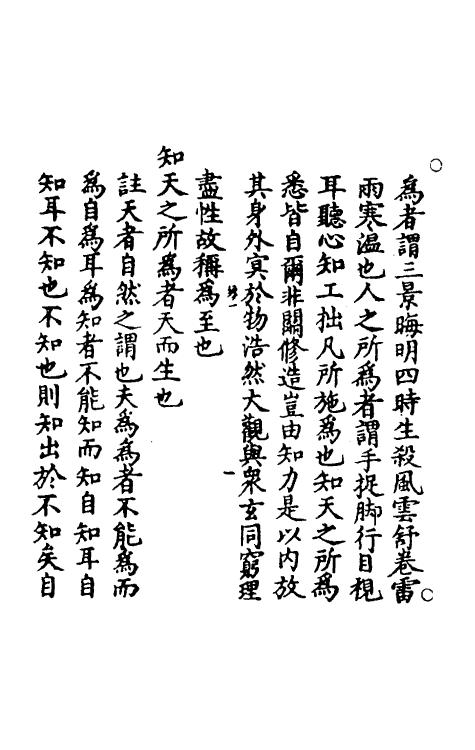 為者謂三景晦明四時生殺風雲舒卷雷
雨寒温也人之所為者謂手捉脚行目視
耳聽心知工拙凡所施為也知天之所為
悉皆自爾非關修造豈由知力是以内放
其身外冥於物浩然大觀與衆玄同窮理
盡性故稱為至也
知天之所為者天而生也
註天者自然之謂也夫為為者不能為而
為自為耳為知者不能知而知自知耳自
知耳不知也不知也則知出於不知矣自